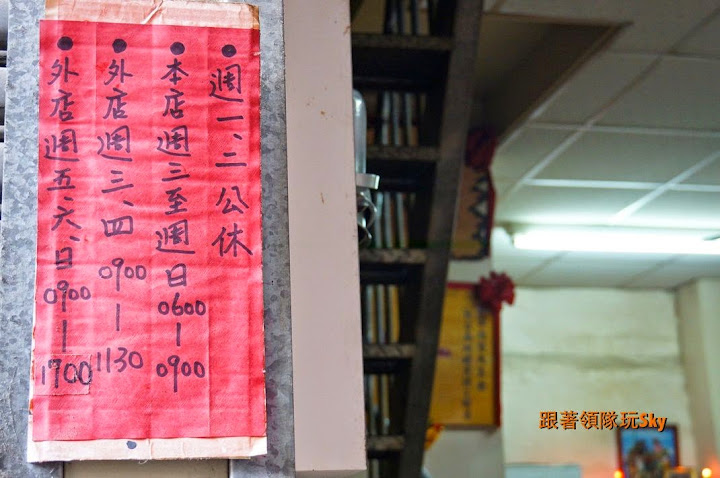 ●週一、二公休
●本店週三至週日0600-0900
●外店週三、四0900-1130
●外店週五、六、日0900-1700
跟著領隊玩Sky